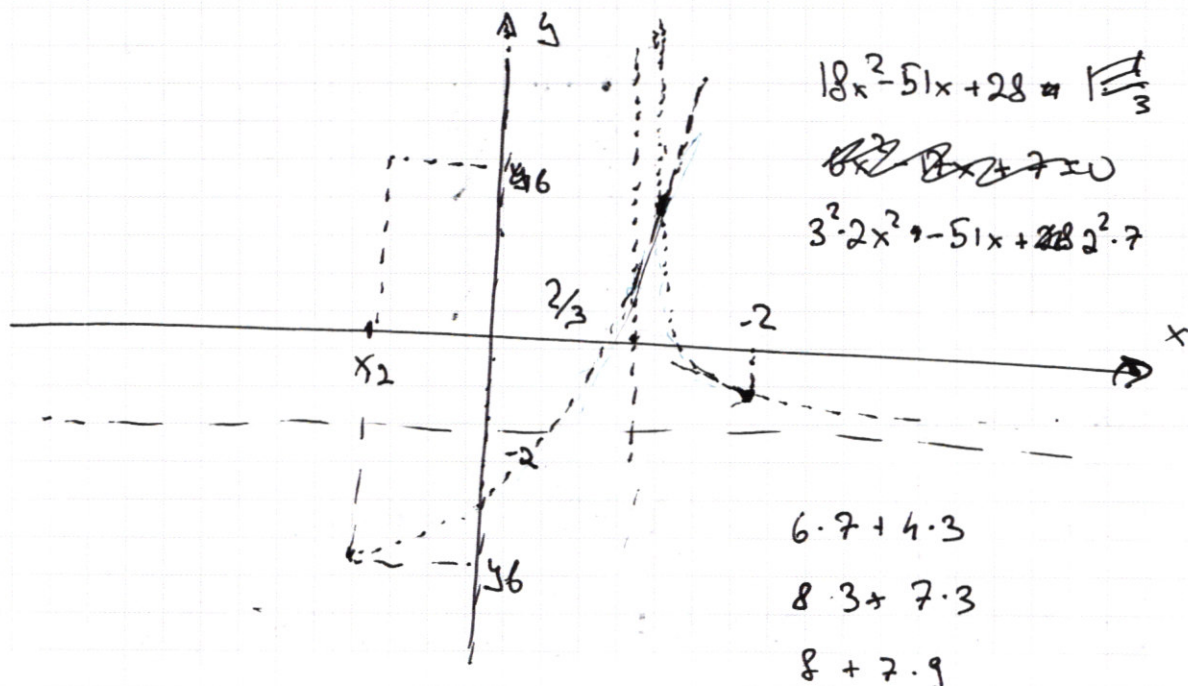 y
18x²-51x+28
3²·2x² -51x+ 2²·7
2/3
-2
x
x₂
-2
y6
6·7+4·3
8·3+7·3
8+7·9